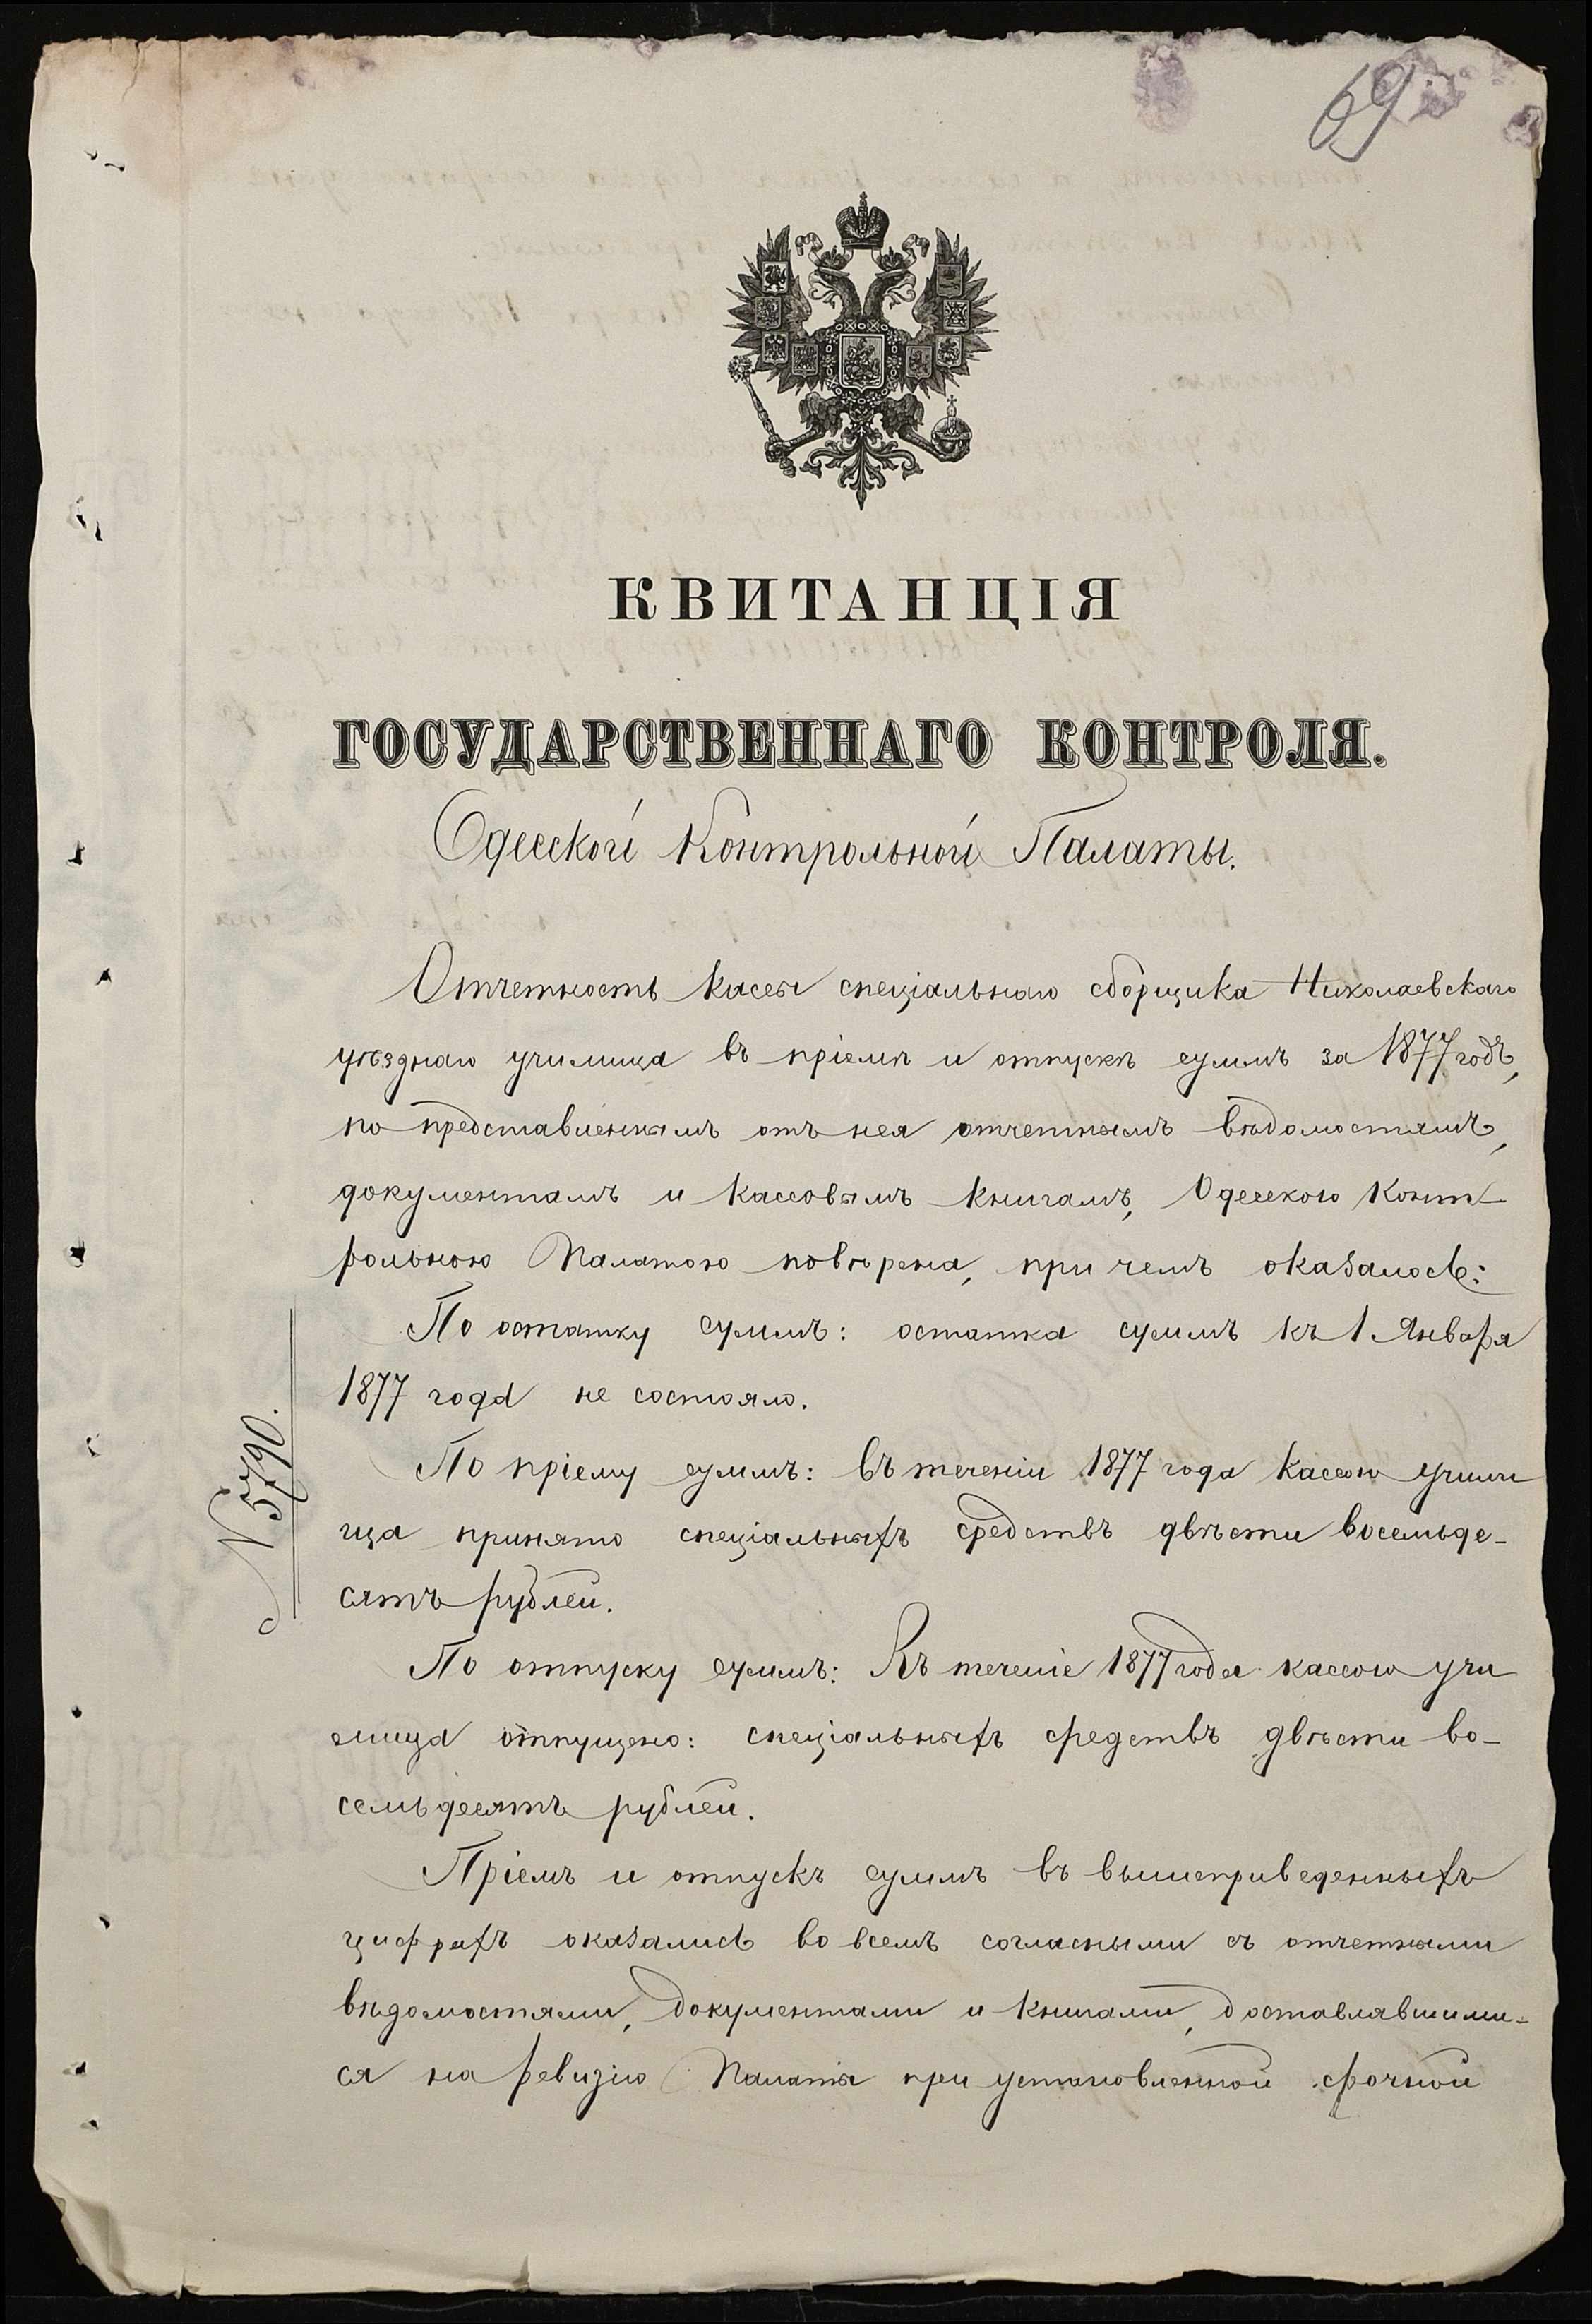 69
КВИТАНЦІЯ
ГОСУДАРСТВЕННАГО КОНТРОЛЯ.
Одесской Контрольной Палаты.
Отчетность кассы спеціальнаго сборщика Николаевскаго
уѣзднаго училища въ пріемѣ и отпускѣ суммъ за 1877 годъ,
по представленнымъ отъ нея отчетнымъ вѣдомостямъ,
документамъ и кассовымъ книгамъ, Одесскою Конт
рольною Палатою повѣрена, при чемъ оказалось:
По остатку суммъ: остатка суммъ къ 1 Января
1877 года не состояло.
По пріему суммъ: въ теченіи 1877 года кассою учили
ща принято спеціальныхъ средствъ двѣсти восемьде-
сятъ рублей.
По отпуску суммъ: Въ теченіе 1877 года кассою учи
лища отпущено: спеціальныхъ средствъ двѣсти во-
семьдесятъ рублей.
Пріемъ и отпускъ суммъ въ вышеприведенныхъ
цифрахъ оказались во всемъ согласными съ отчетными
вѣдомостями, документами и книгами, доставлявшими-
ся на ревизію Палаты при установленной срочной
N 5790.